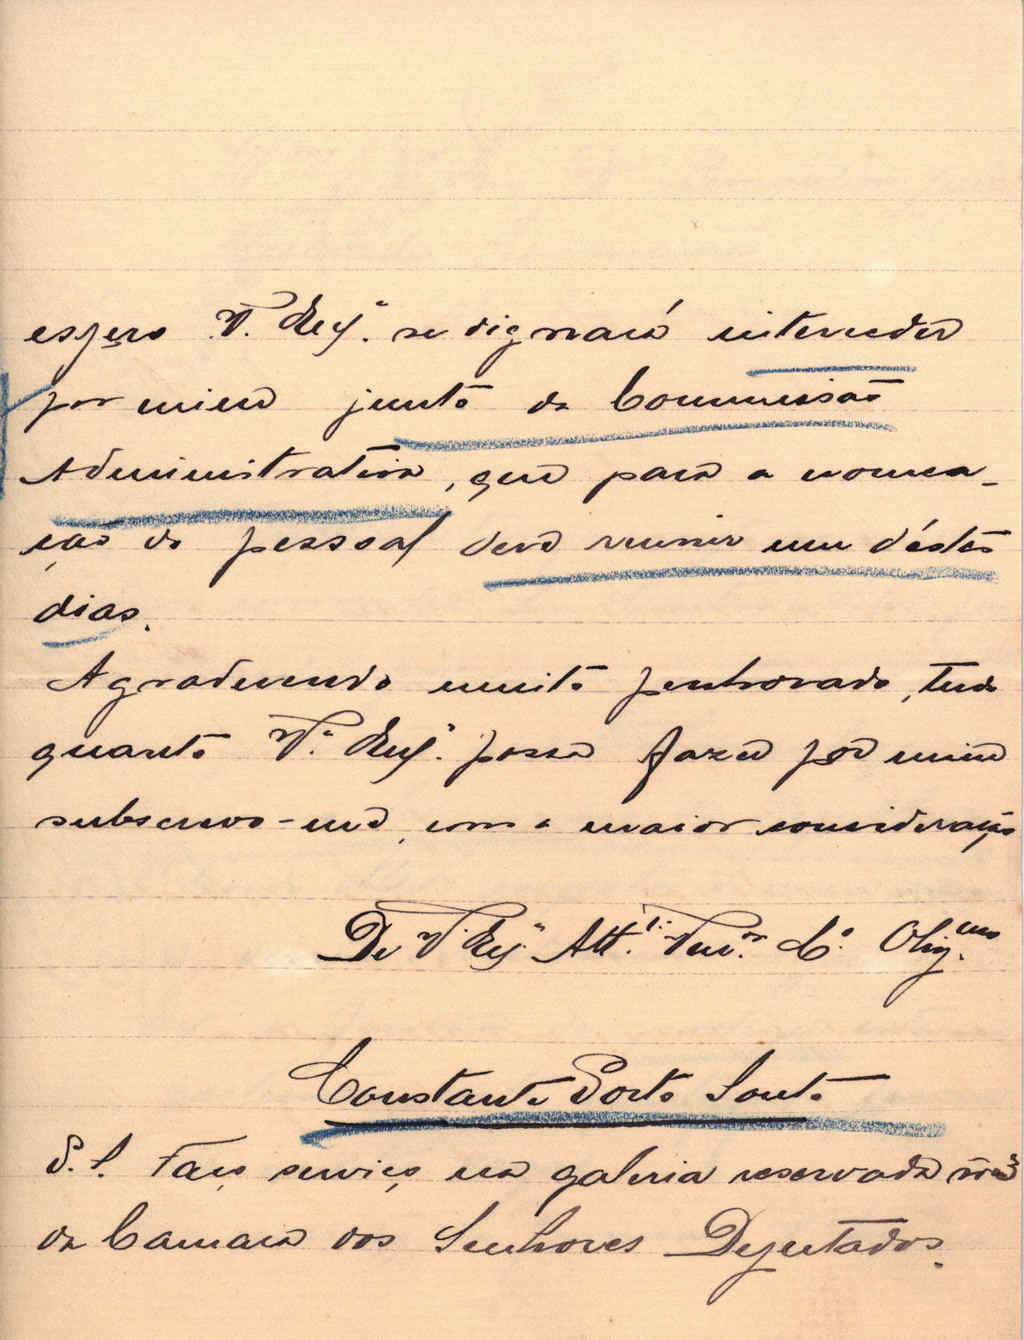 espero V. Ex.ª se dignará interceder
por mim junto da Commissão
Administrativa, que para a nomea-
ção do pessoal deve reunir um d'éstes
dias.
Agradecendo muito penhorado, tudo
quanto V.ª Ex.ª possa fazer por mim
subscrevo-me, com a maior consideração
De V. Ex.ª Att.º Ven.or C.º Obig.mo
Constante Porto Santo
P.S. Faço serviço na galeria reservada nº 3
da Camara dos Senhores Deputados.